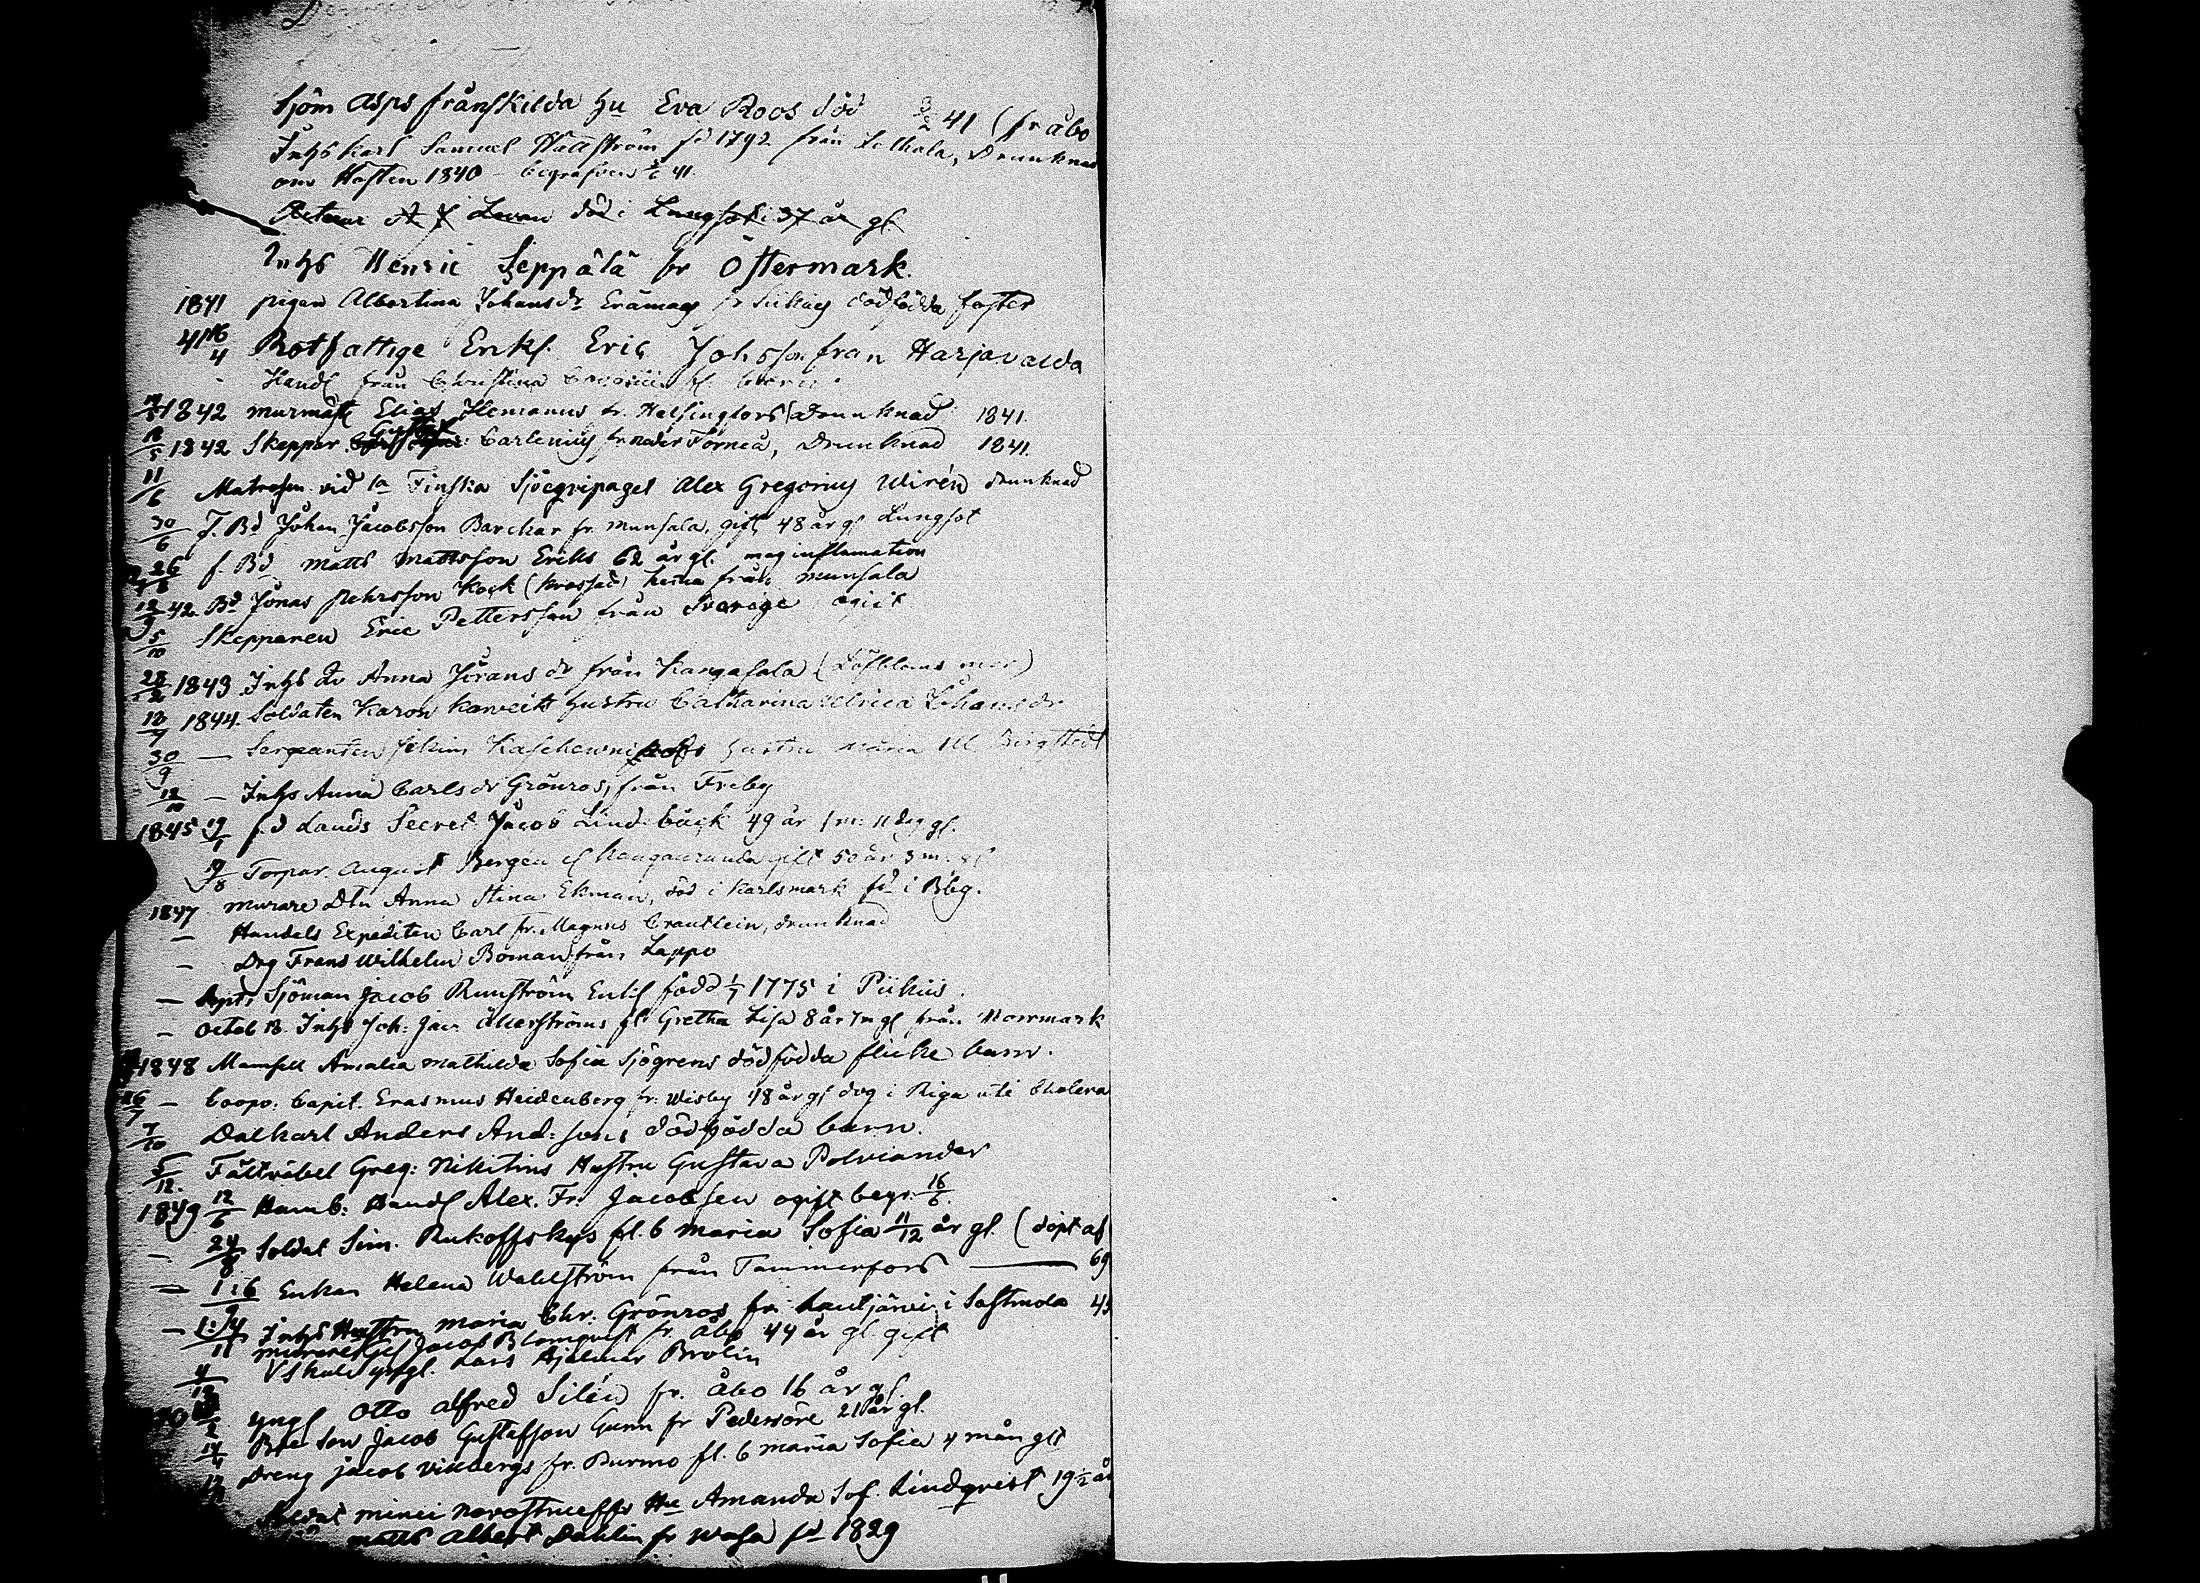 Sjöm Asps frånskilda Hu Eva Roos död 3/2 41 (fr åbo
Inhs Karl Samuel Wattström fd 1792 från Lethala, Drunknad
om Hösten 1840 - begrafven 41.
A F Levan död i Lungsot 37 år gl
Inhs Henric Seppälä fr Östermark.
1841 pigan Albertina Johansdr Erämag fr dödfödda foster
41 16/4 Rotfattige Enkl. Eric Johsson från Harjavalda
Handl från Christina
1842 murmäst Elias Ilemanus fr. Helsingfors (drunknad 1841.
18/5 1842 Skeppar Gustaf Carlenius fr neder Torneå, Drunknad 1841.
11/6 Matrosen vid 1a Finska Sjöeqvipaget Alex Gregorius Wirén drunknad
30/6 f. Bd Johan Jacobsson Backar fr. munsala, gift 48 år gl Lungsot
26/8 f. Bd Matts Mattsson Eriks 62 år gl. maginflamation
12/9 42 Bd Jonas Pehrsson Kock (krossad) hema från munsala
5/10 Skepparen Eric Pettersson från Sverige ogift
28/2 1843 Inhs Anna Jörans dr från Kangasala (Löfbloms mor)
12/7 1844 Soldaten Karon Karveits hustru Catharina Ulrica Johansdr
30/9 — Sergeanten hustru Maria Ul Bergstedt
12/10 — Inhs Anna Carls dr Grönros, från Friby
1845 19/1 f.d Lands Secret. Jacob Lindbäck 49 år 1 m: 11 dag gl.
9/8 Torpar. August Bergén gift 50 år 3 m: gl
1847 murare Dtn Anna Stina Ekman, död i Karlsmark fd i Bbg.
— Handels Expediten Carl fr. Magnus drunknad
— Drg Frans Wilhelm Boman från Lappo
— Sjöman Jacob Runström Enkl född 1/7 1775 i Piikis
— Octob 13. Inhs Joh: Jac: Åkerströms fl: Gretha Lisa 8 år 7 m gl från Norrmark
1848 Mamsell Amalia Mathilda Sofia Sjögrens dödfödda flicke barn.
26/7 — Coopv. Capit. Erasmus Heidenberg fr. Wisby 48 år gl dog i Riga uti Cholera
7/10 Dalkarl Anders And:sons dödfödda barn.
5/12. Fältväbel Greg: Nikitins Hustru Gustava Polviander
1849 12/6 Hamb: Handl Alex. Fr. Jacobsen ogift begr. 16/6.
— 24/8 Soldat Sim. Rukoffskys fl. b Maria Sofia 11/12 år gl. (döpt af
— 1:6/9 Enkan Helena Wahlström från Tammerfors — 69
— 1:4/11 Inhs Hustru Maria Chr: Grönros fr. Lautjärvi i Sastmola 45
Jacob Blomqvist fr. åbo 44 år gl. gift
4/12 Lars Hjalmar Brolin
yngl Otto Alfred Silén fr. åbo 16 år gl.
Bde Son Jacob Gustafson Gunn fr Pedersöre 21 år gl.
Dreng Jacob Vikbergs fr. Purmo fl. b Maria Sofia 4 mån glt
Soldat minei Hu Amanda Sof. Lindqvist 19½ år
Matts Albert Dahlin fr Wasa fd 1829